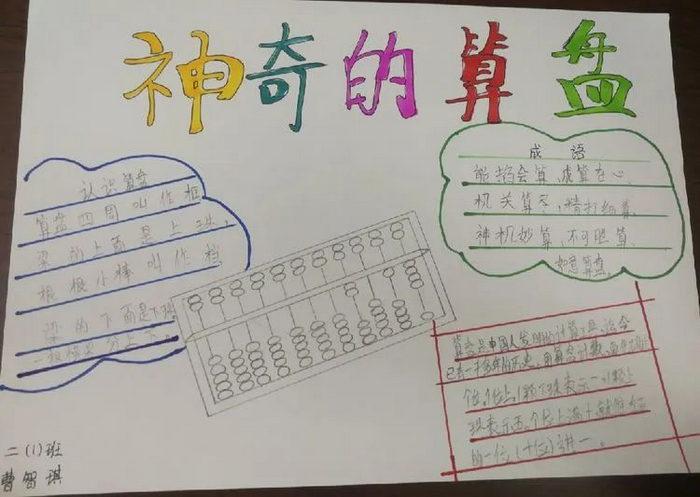 神奇的算盘
认识算盘
算盘四周叫作框
梁的上面是上珠，
根根小棒叫作档
梁的下面是下珠
一根档梁分上下。
成语
能掐会算，成算在心
机关算尽，精打细算
神机妙算，不可胜算
如意算盘。
算盘是中国人发明的计算工具，迄今
已有一千多年的历史，用算盘计数，
个位上1颗下珠表示一，1颗上
珠表示五，个位上满十就向前
的一位（十位）进一。
二（1）班
曹智琪